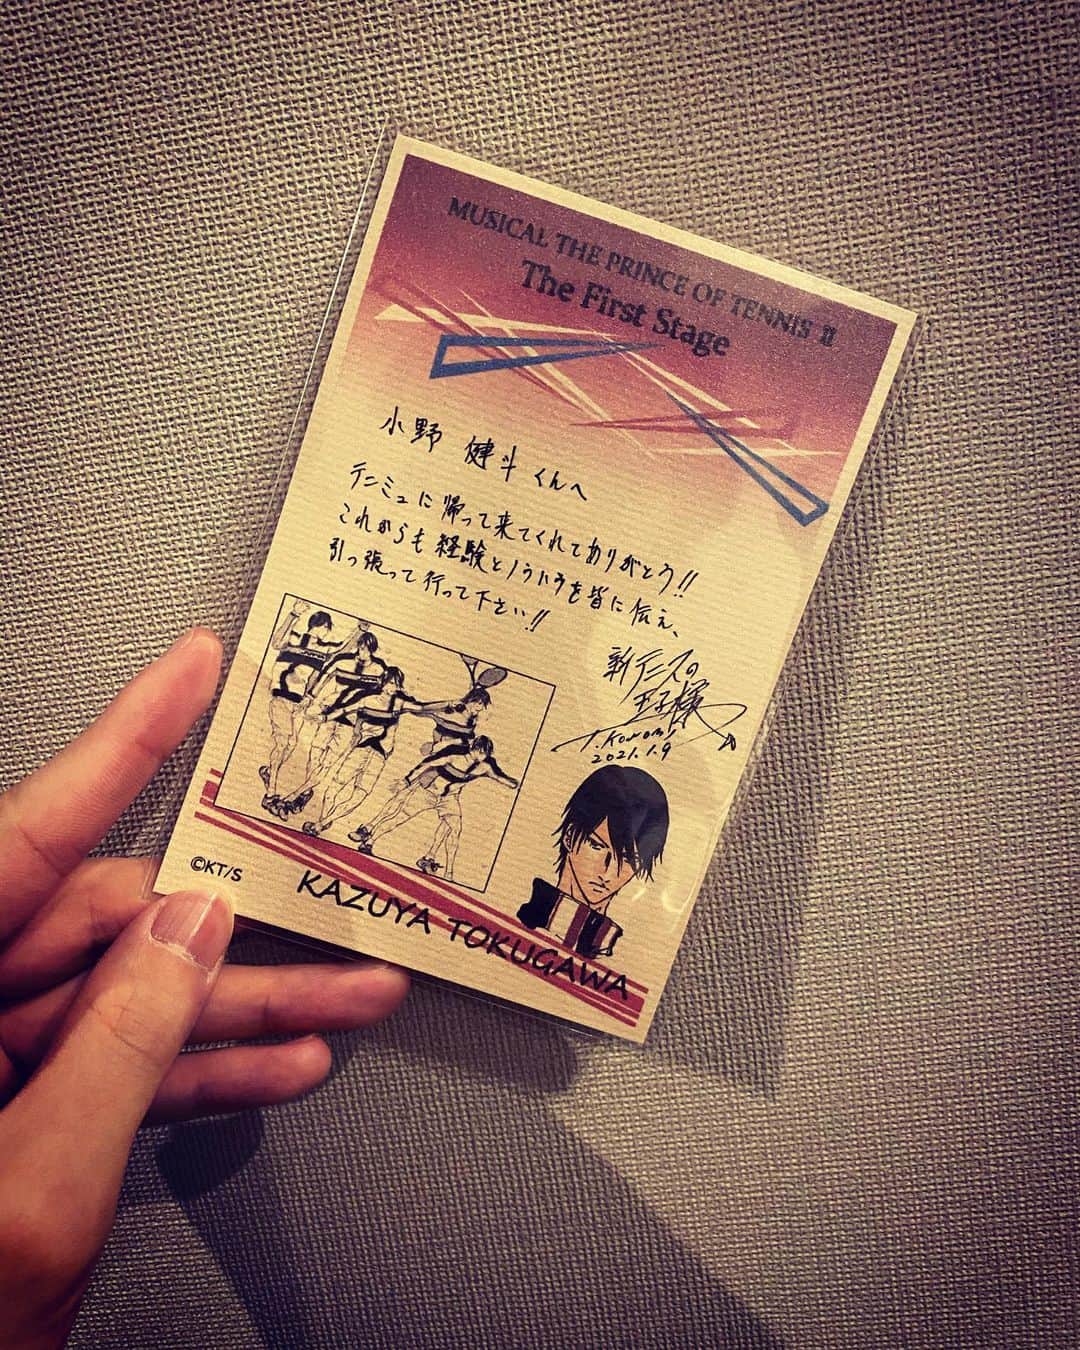 MUSICAL THE PRINCE OF TENNIS II
The First Stage
小野 健斗くんへ
テニミュに帰って来てくれてありがとう!!
これからも経験とノウハウを皆に伝え、
引っ張って行って下さい!!
新テニスの
王子様
T.Konomi
2021.1.9
©KT/S
KAZUYA TOKUGAWA